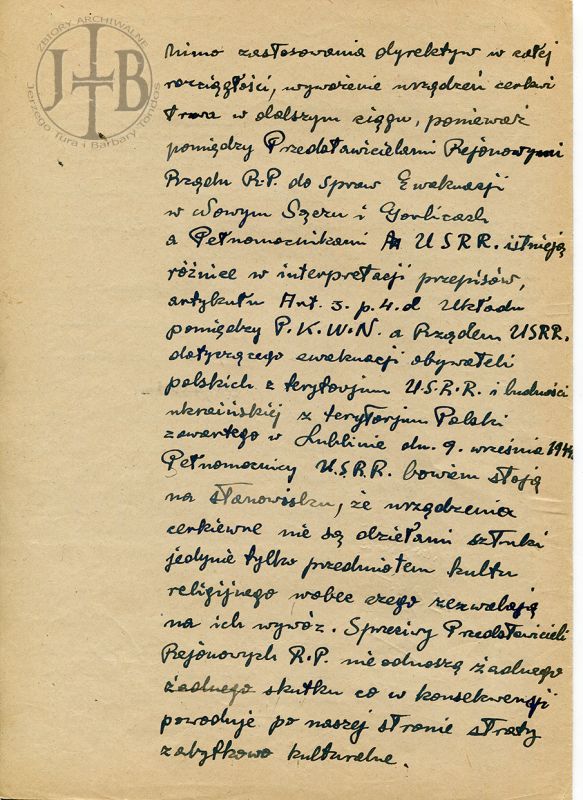 ZBIORY ARCHIWALNE
JTB
Jerzego Tura i Barbary Tondos
Mimo zastosowania dyrektyw w całej
rozciągłości, wywożenie urządzeń cerkwi
trwa w dalszym ciągu, ponieważ
pomiędzy Przedstawicielami Rejonowymi
Rządu R.P. do spraw Ewakuacji
w Nowym Sączu i Gorlicach
a Pełnomocnikami USRR. istnieją
różnice w interpretacji przepisów,
artykułu Art. 3. p. 4. d Układu
pomiędzy P.K.W.N. a Rządem USRR.
dotyczącego ewakuacji obywateli
polskich z terytorjum U.S.R.R. i ludności
ukraińskiej z terytorjum Polski
zawartego w Lublinie dn. 9. września 1944.
Pełnomocnicy U.S.R.R. bowiem stoją
na stanowisku, że urządzenia
cerkiewne nie są dziełami sztuki
jedynie tylko przedmiotem kultu
religijnego wobec czego zezwalają
na ich wywóz. Sprzeciwy Przedstawicieli
Rejonowych R.P. nie odnoszą żadnego
żadnego skutku co w konsekwencji
powoduje po naszej stronie straty
zabytkowo kulturalne.